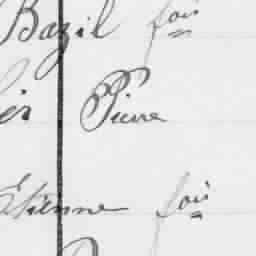 Bazil fois
ier Pierre
Etienne fois